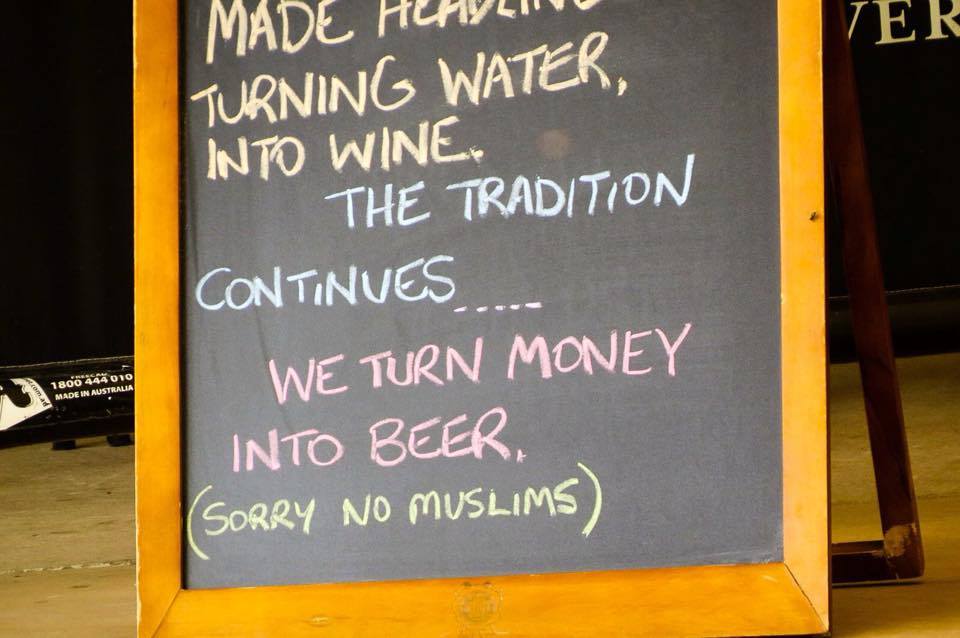 MADE
TURNING WATER,
INTO WINE.
THE TRADITION
CONTINUES.....
WE TURN MONEY
INTO BEER.
(SORRY NO MUSLIMS)
VER
1800 444 010
MADE IN AUSTRALIA